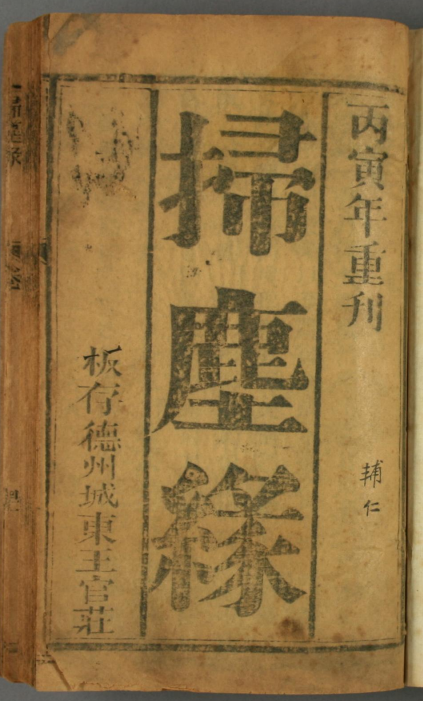 丙寅年重刊
輔仁
掃塵緣
板存德州城東王官莊